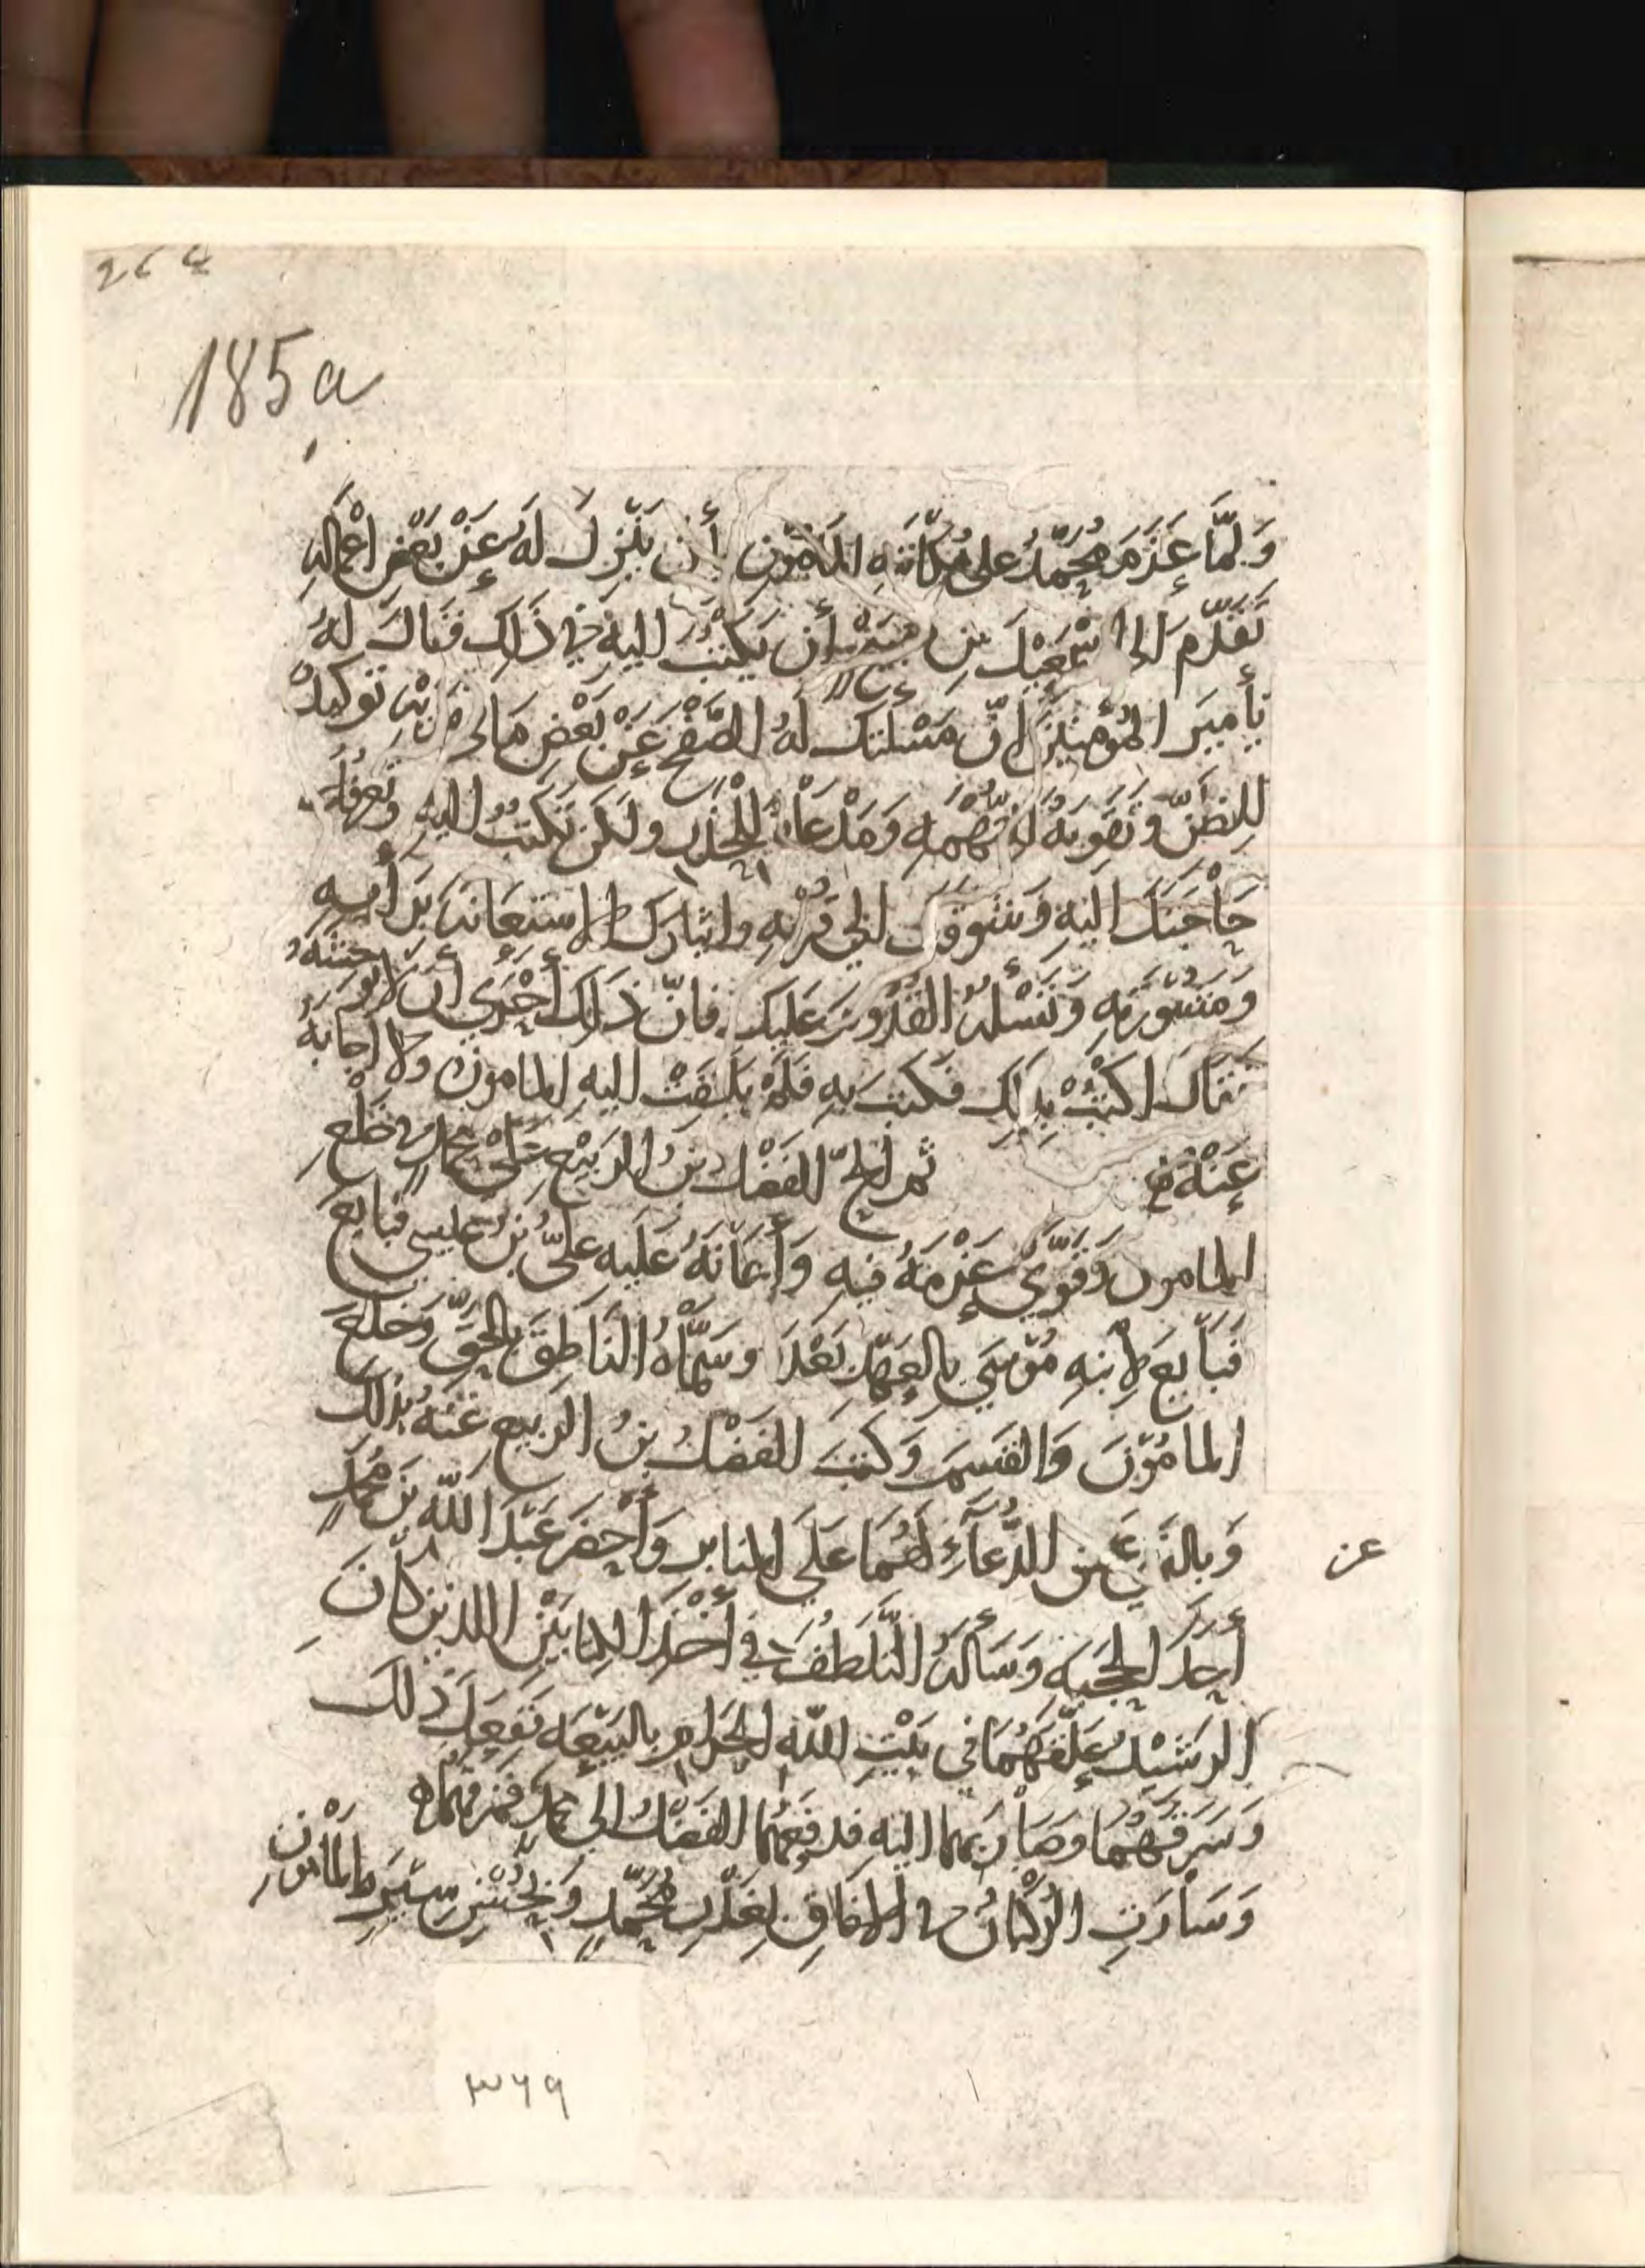 264
185a
وَلَمَّا عَزَمَ مُحَمَّدٌ على مُكاتبَتهِ المَأمُون أن يَنْزِلَ لَهُ عَنْ بَعْضِ أعْمَالِهِ
تَقَدَّمَ إلى إسْمعِيْلَ بنِ صُبَيْح أن يَكْتُبَ إليه في ذَلك فَقَالَ لهُ
يأَميرَ المُؤْمنينَ إنَّ مَسْئلتك لَهُ الصَّفْحَ عَنْ بَعْضِ مَا في يَديْهِ توكيدٌ
لِلظَنّ وتَقويَةٌ للتُّهْمَه وَمَدْعَاةٌ للحَذَر ولَكن تكتُبُ اليهِ وتُعرفُهُ
حَاْجَتَكَ اليْهِ وَشَوقَك الى قُرْبهِ وإيثارك الاسْتعَانَه بَرَأْيهِ
وَمَشُورَتِهِ وَتَسْئلُهُ القُدُوْمَ عَليْكَ فَانّ ذَلِكَ أحْرَي أن لا يُوحشَهُ
فَقَالَ اكتُبْ بِذلِكَ فَكتبَ بهِ فَلَمْ يَلْتفتْ اليهِ المامون ولا اجابهُ
عَنْهُ ثم ألحّ الفَضْلُ بنُ الرَبيْع عَلَى محمدٍ في خَلْعِ
المامون وَقَوَّي عَزْمَهُ فيهِ وَأعَانَهُ عَلَيه علىُّ بنُ عيسي فبايَعَ
فَبَاْيَعَ لأبنهِ مُوْسَي بالعَهْدِ بَعْدَهُ وسَمَّاْهُ النَاطِقَ بالحَقّ وَخلَعَ
المامُوْنَ وَالقسمَ وَكتبَ الفَضْلُ بنُ الربيعِ عَنْهُ بذلك
وَبازالَةِ عن الدُّعآءِ لَهُمَا عَلَي المنابر وَأحْضَرَ عَبْدَ اللّه بنَ محمدٍ
عن
أحَدَ الحَجَبَه وَسَألَهُ التَّلطُفَ في أخْذ الكتابَيْنِ اللذين كانَ
الرشيْدُ عَلَّقَهُمَا في بَيْتِ اللّه الحَرام بالبيْعَه ففَعلَ ذلك
وَسَرَقَهُمَا وصَارَ بهما اليْه فدفعهُما الفَضْلُ الى محمدٍ فمزقهُما
وَسَاْرَتِ الركْبَانُ في الافاق بغَدْرِ مُحَمَّدٍ وَبحُسْنِ سيْرَةِ المأمون
٣٦٩